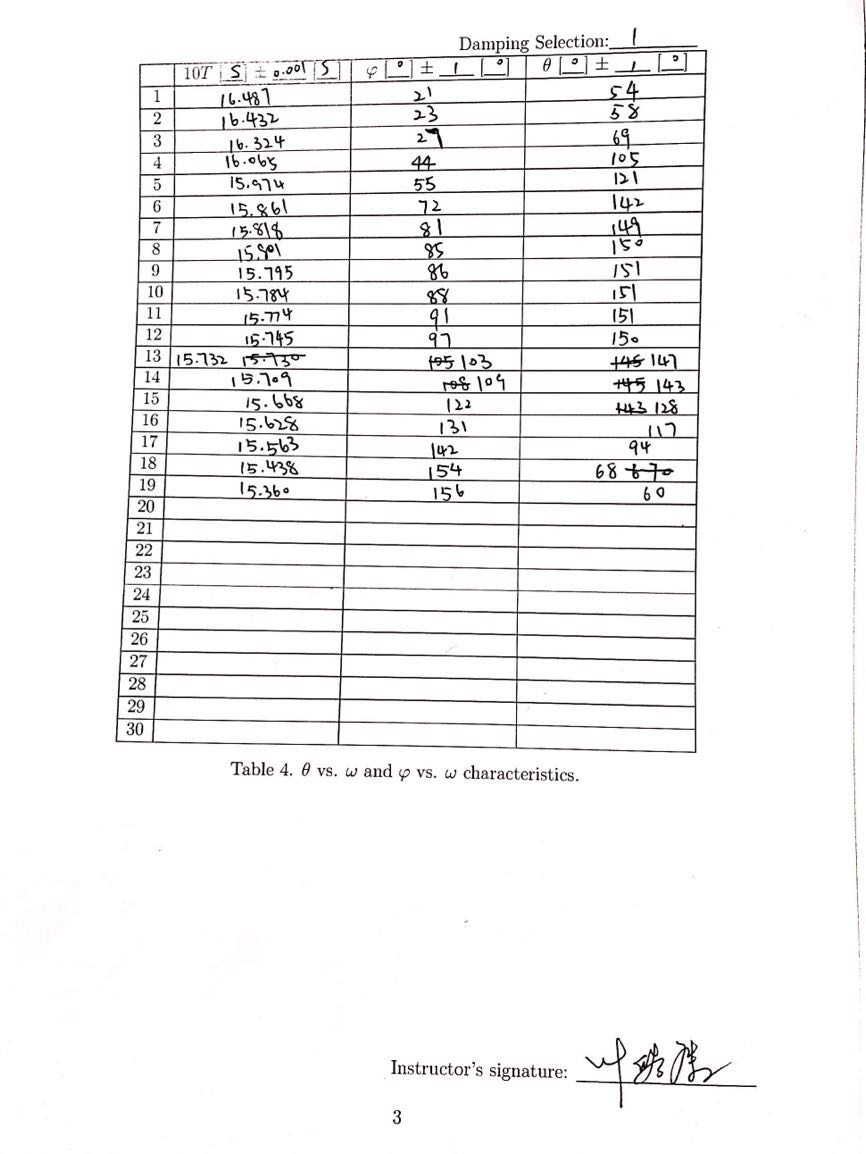 Damping Selection: 1
10T [S] ± 0.001 [S] φ [°] ± 1 [°] θ [°] ± 1 [°]
1 16.487 21 54
2 16.432 23 58
3 16.324 27 69
4 16.065 44 105
5 15.974 55 121
6 15.861 72 142
7 15.818 81 149
8 15.801 85 150
9 15.795 86 151
10 15.784 88 151
11 15.774 91 151
12 15.745 97 150
13 15.732 15.730 105 103 146 147
14 15.709 108 109 145 143
15 15.668 122 143 128
16 15.628 131 117
17 15.563 142 94
18 15.438 154 68 670
19 15.360 156 60
20
21
22
23
24
25
26
27
28
29
30
Table 4. θ vs. ω and φ vs. ω characteristics.
Instructor's signature:
3